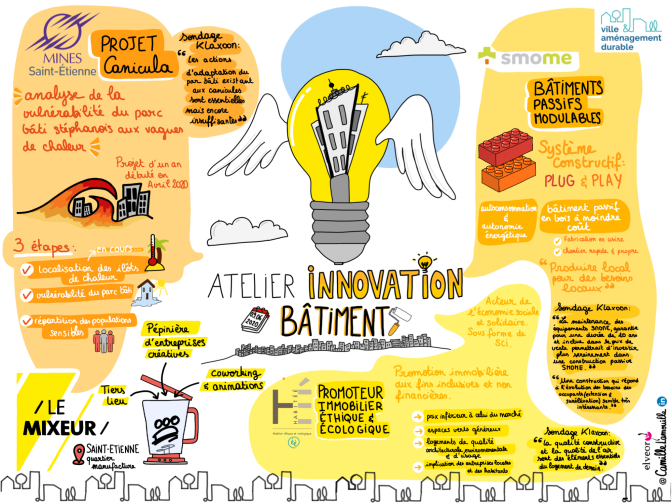 MINES
Saint-Étienne
PROJET
Canicula
Sondage
Klaxoon:
Les actions
d'adaptation du
parc bâti existant
aux canicules
sont essentielles
mais encore
insuffisantes
analyse de la
vulnérabilité du parc
bâti stéphanois aux vagues
de chaleur
Projet d'un an
débuté en
Avril 2020
3 étapes:
en cours
Localisation des îlots
de chaleur
vulnérabilité du parc bâti
répartition des populations
sensibles
ATELIER INNOVATION
BÂTIMENT
2020
Pépinière
d'entreprises
créatives
coworking
& animations
Tiers
lieu
/ LE
MIXEUR /
SAINT-ETIENNE
quartier
manufacture
ville
aménagement
durable
smome
BÂTIMENTS
PASSIFS
MODULABLES
Système
constructif:
PLUG & PLAY
autoconsommation
&
autonomie
énergétique
bâtiment passif
en bois à moindre
coût
Fabrication en usine
chantier rapide & propre
"Produire local
pour des besoins
locaux"
Sondage Klaxoon:
"La maintenance des
équipements SMOME, garantie
pour une durée de 10 ans
et incluse dans le prix de
vente permettrait d'investir
plus sereinement dans
une construction passive
SMOME."
"Une construction qui répond
à l'évolution des besoins des
occupants (extension &
surélévation) semble très
intéressante"
Acteur de
l'économie sociale
et Solidaire.
Sous forme de
Sci.
HABITÉ
PROMOTEUR
IMMOBILIER
ÉTHIQUE &
ÉCOLOGIQUE
Promotion immobilière
aux fins inclusives et non
financières.
prix inférieur à celui du marché
espaces verts généreux
logements de qualité
architecturale, environnementale
& d'usage
implication des entreprises locales
et des habitants
Sondage Klaxoon:
"la qualité constructive
et la qualité de l'air
sont des éléments essentiels
du logement de demain"
elveor
@Camille Vanneille in